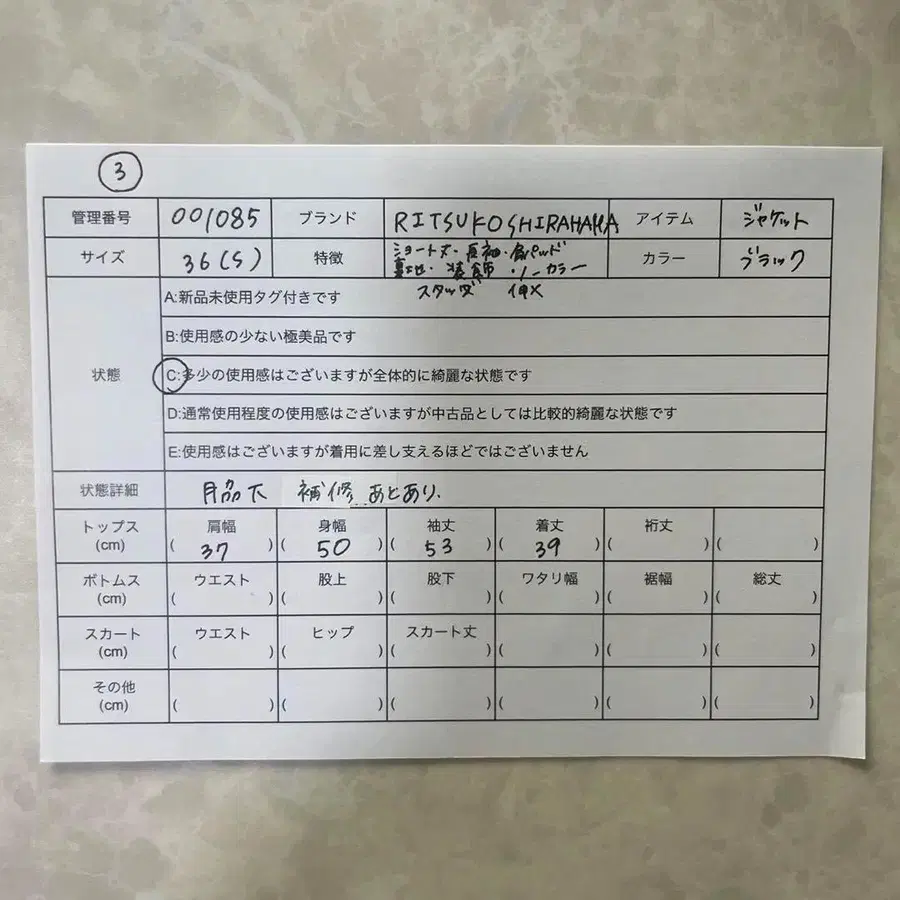 3
管理番号 001085 ブランド RITSUKOSHIRAHAMA アイテム ジャケット
サイズ 36(S) 特徴 ショート丈・長袖・肩パッド カラー ブラック
裏地・装飾・ノーカラー
スタッズ
状態
A:新品未使用タグ付きです
B:使用感の少ない極美品です
C:多少の使用感はございますが全体的に綺麗な状態です
D:通常使用程度の使用感はございますが中古品としては比較的綺麗な状態です
E:使用感はございますが着用に差し支えるほどではございません
状態詳細 脇下 補修あとあり.
トップス 肩幅 身幅 袖丈 着丈 裄丈
(cm) (37) (50) (53) (39) ( ) ( )
ボトムス ウエスト 股上 股下 ワタリ幅 裾幅 総丈
(cm) ( ) ( ) ( ) ( ) ( ) ( )
スカート ウエスト ヒップ スカート丈
(cm) ( ) ( ) ( ) ( ) ( ) ( )
その他
(cm) ( ) ( ) ( ) ( ) ( ) ( )